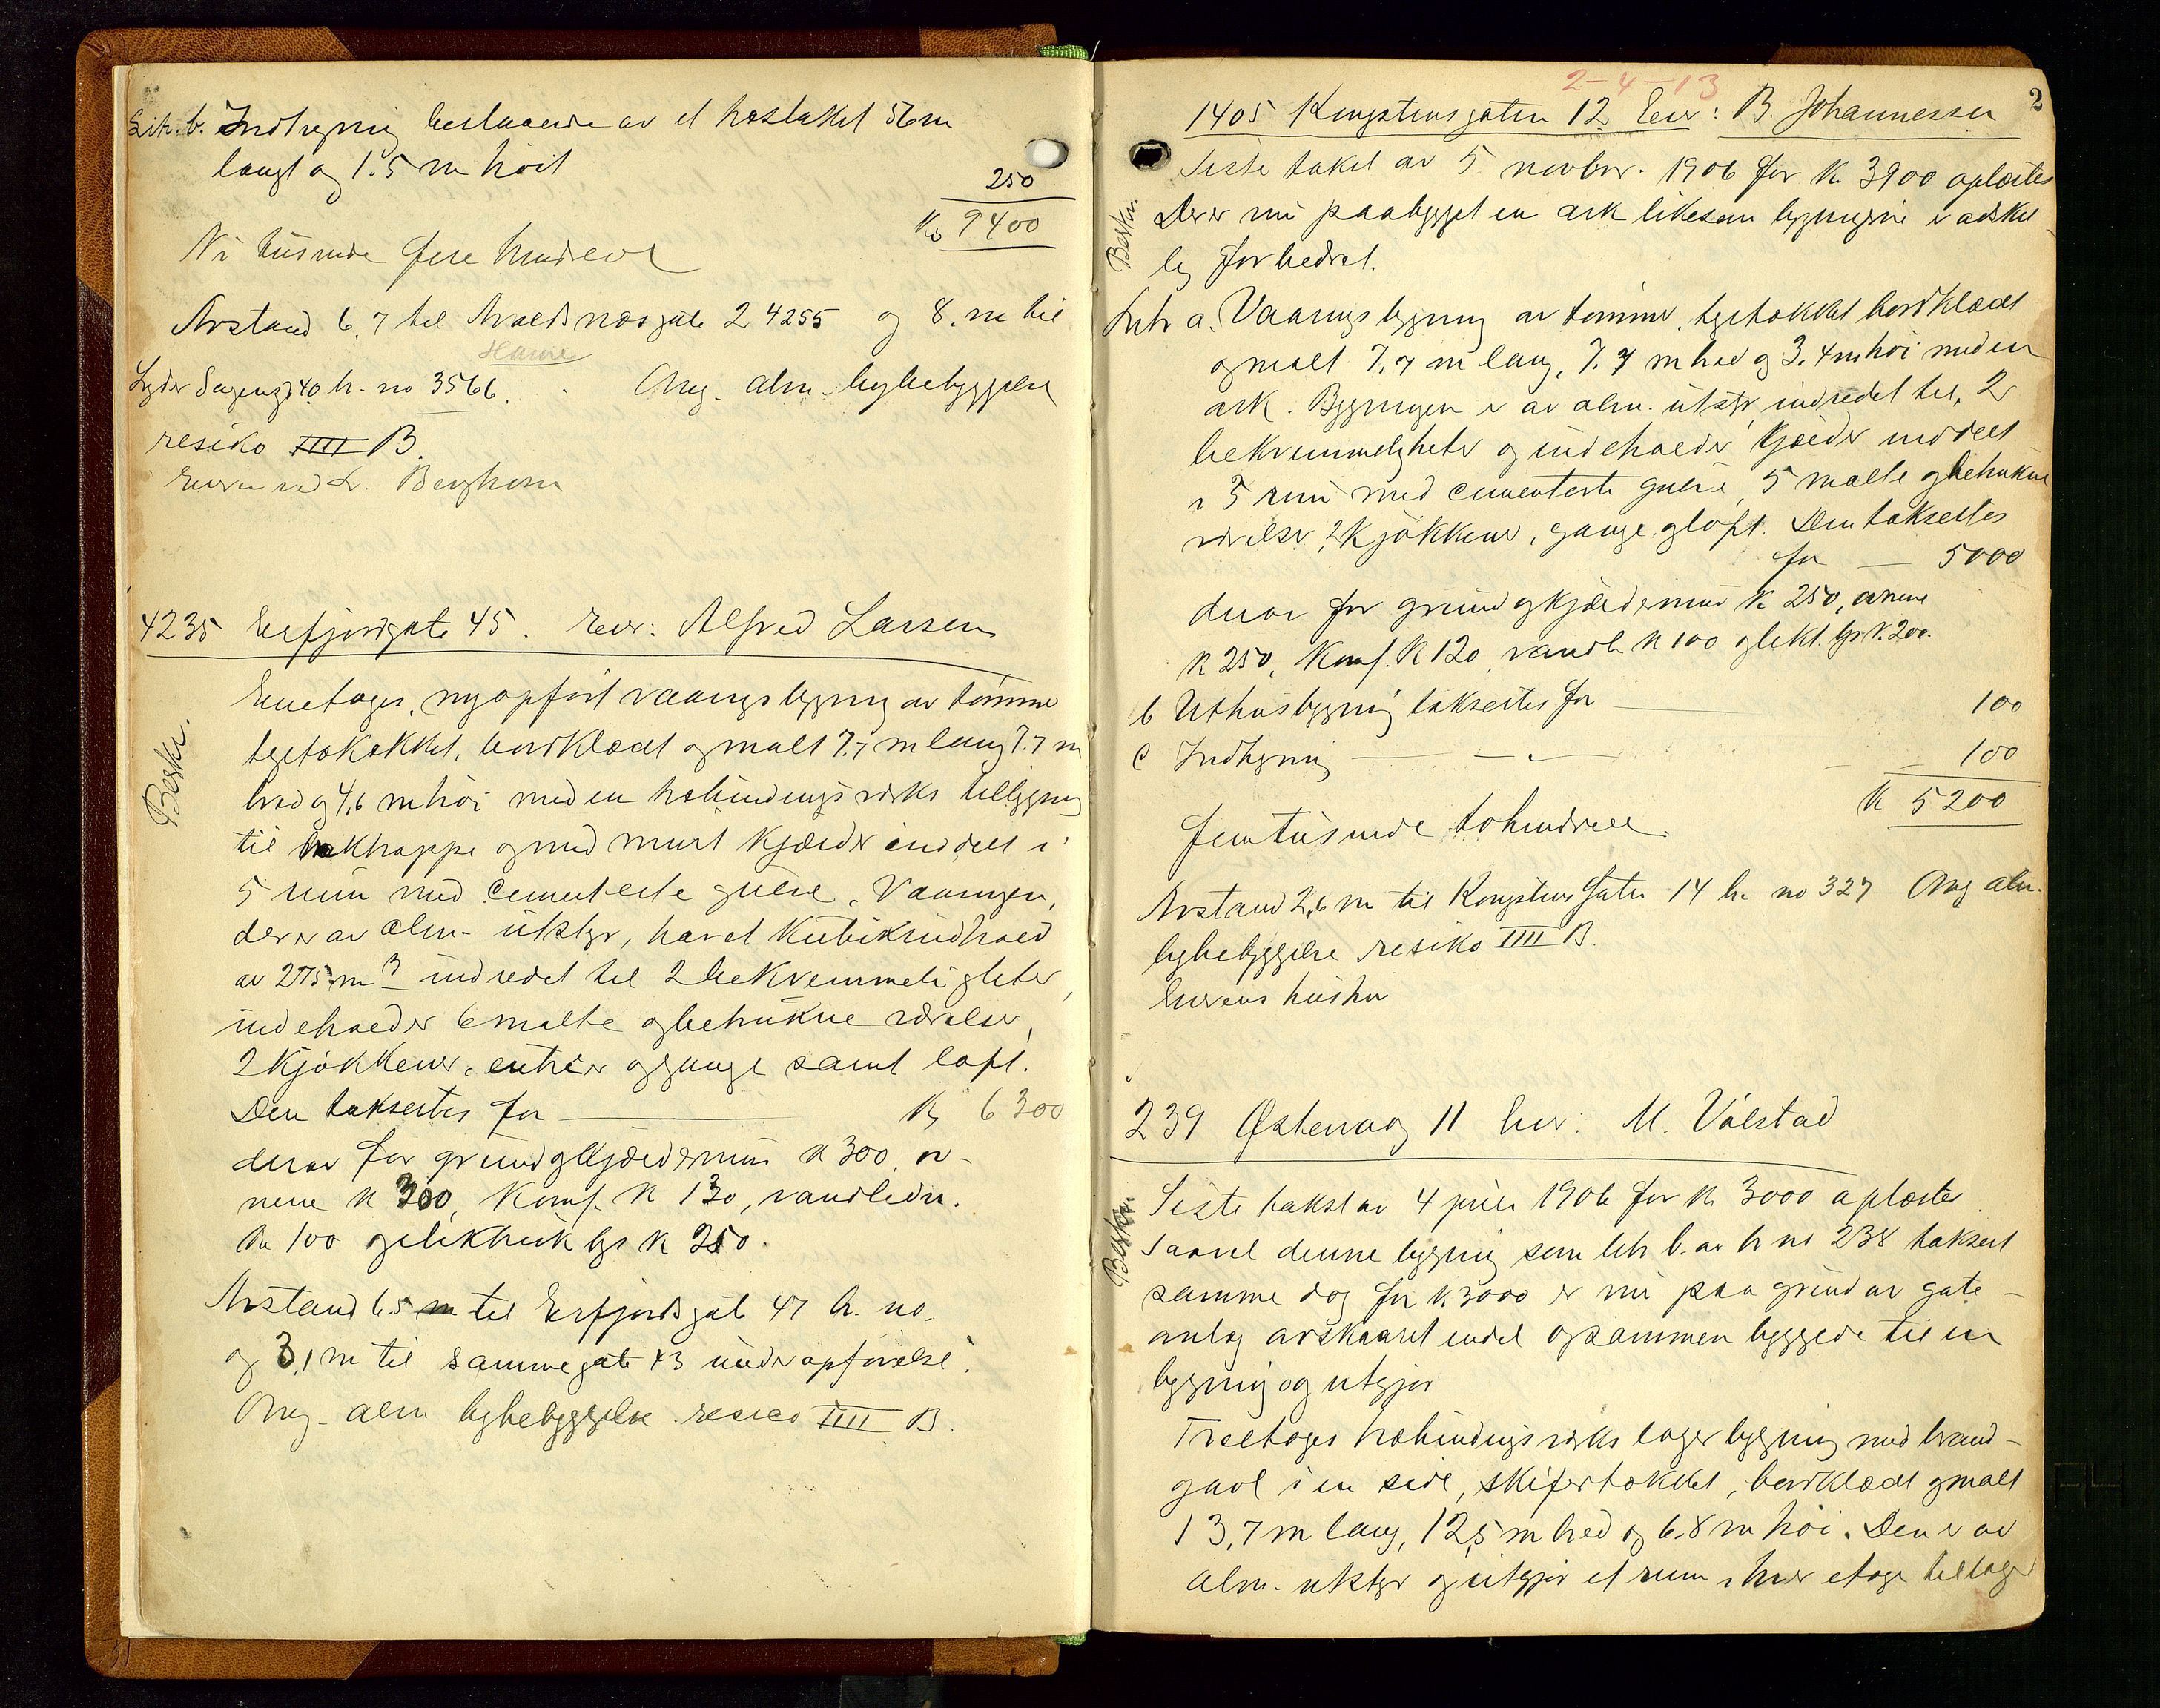 Litr. b. Indhegning bestaaende av et hestakit 56 m
langt og 1.5 m høit
250
Kr 9400
Ni tusinde fire hundrede
Avstand 6,7 til Avaldsnesgate 2 4255 og 8. m til
Haune
Lyder Sagensgt 40 h. no 3566. Ang. alm. bybebyggelse
resiko IIII B.
Eieren ved L. Berghom
4235 Erfjordgate 45. Eier: Alfred Larsen
Beskr.
Enetages, nyopført vaaningsbygning av tømmer
teglstækket, bordklædt og malt 7.7 m lang 7.7 m
bred og 4,6 m høi med en halvindingsverks tilbygning
til baktrappe og med muret kjælder inddelt i
5 rum med cementerte gulve. Vaaningen,
der er av alm. utstyr, har et kubikindhold
av 275 m³ indredet til 2 bekvemmeligheter,
indeholder 6 malte og betrukne værelser,
2 kjøkkener, entreer og gange samt loft.
Den takseres for Kr 6300
derav for grund og kjældermur K 300, ov-
nene K 300, Komf. K 130, vandledn.
K 100 og elektrisk lys K 250.
Avstand 6.5 m til Erfjordsgate 47 h. no.
og 3,1 m til samme gate 43 under opførelse.
Ang. alm bybebyggelse. resico IIII B.
2-4-13
2
1405 Kongstensgaten 12 Eier: B. Johannessen
Beskr.
Siste takst av 5 novbr. 1906 for K 3900 oplæstes
Der er nu paabygget en ark likesom bygningene er adskil-
lig forbedret.
Litr a. Vaaningsbygning av tømmer, teglstækket bordklædt
og malt 7.7 m lang, 7.7 m bred og 3.4 m høi med en
ark. Bygningen er av alm. utstyr, indredet til 2
bekvemmeligheter og indeholder kjælder inddelt
i 5 rum med cementerte gulve, 5 malte og betrukne
værelser, 2 kjøkkener, gange og loft. Den takseres
for 5000
derav for grund og kjældermur K 250, ovnene
K 250, Komf. K 120, vandl. K 100 og elekt. lys K. 200.
b Uthusbygning takseres for 100
c Indhegning 100
K 5200
femtusinde tohundrede
Avstand 2,6 m til Kongstens Gaten 14 h. no 327 Ang alm.
bybebyggelse resiko IIII B.
Eierens hustru
239 Østervaag 11 Eier: M. Vålstad
Beskr.
Siste takst av 4 juli 1906 for K 3000 oplæstes
Saavel denne bygning som litr b. av h no 238 taksert
samme dag for K 3000 er nu paa grund av gate-
anlæg avskaaret endel og sammenbyggede til en
bygning og utgjør
Toetages halvindingsverks lagerbygning med brand-
gavl i en side, skifertækket, bordklædt og malt
13,7 m lang, 12,5 m bred og 6.8 m høi. Den er av
alm. utstyr og utgjør et rum i hver etage til lager